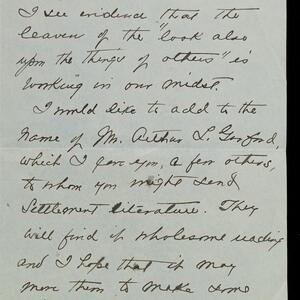 I see evidence that the
leaven of the "look also
upon the things of others" is
working in our midst.
I would like to add to the
name of Mr. Arthur L. Garford,
which I gave you, a few others,
to whom you might send
Settlement literature. They
will find it wholesome reading
and I hope that it may
move them to make some